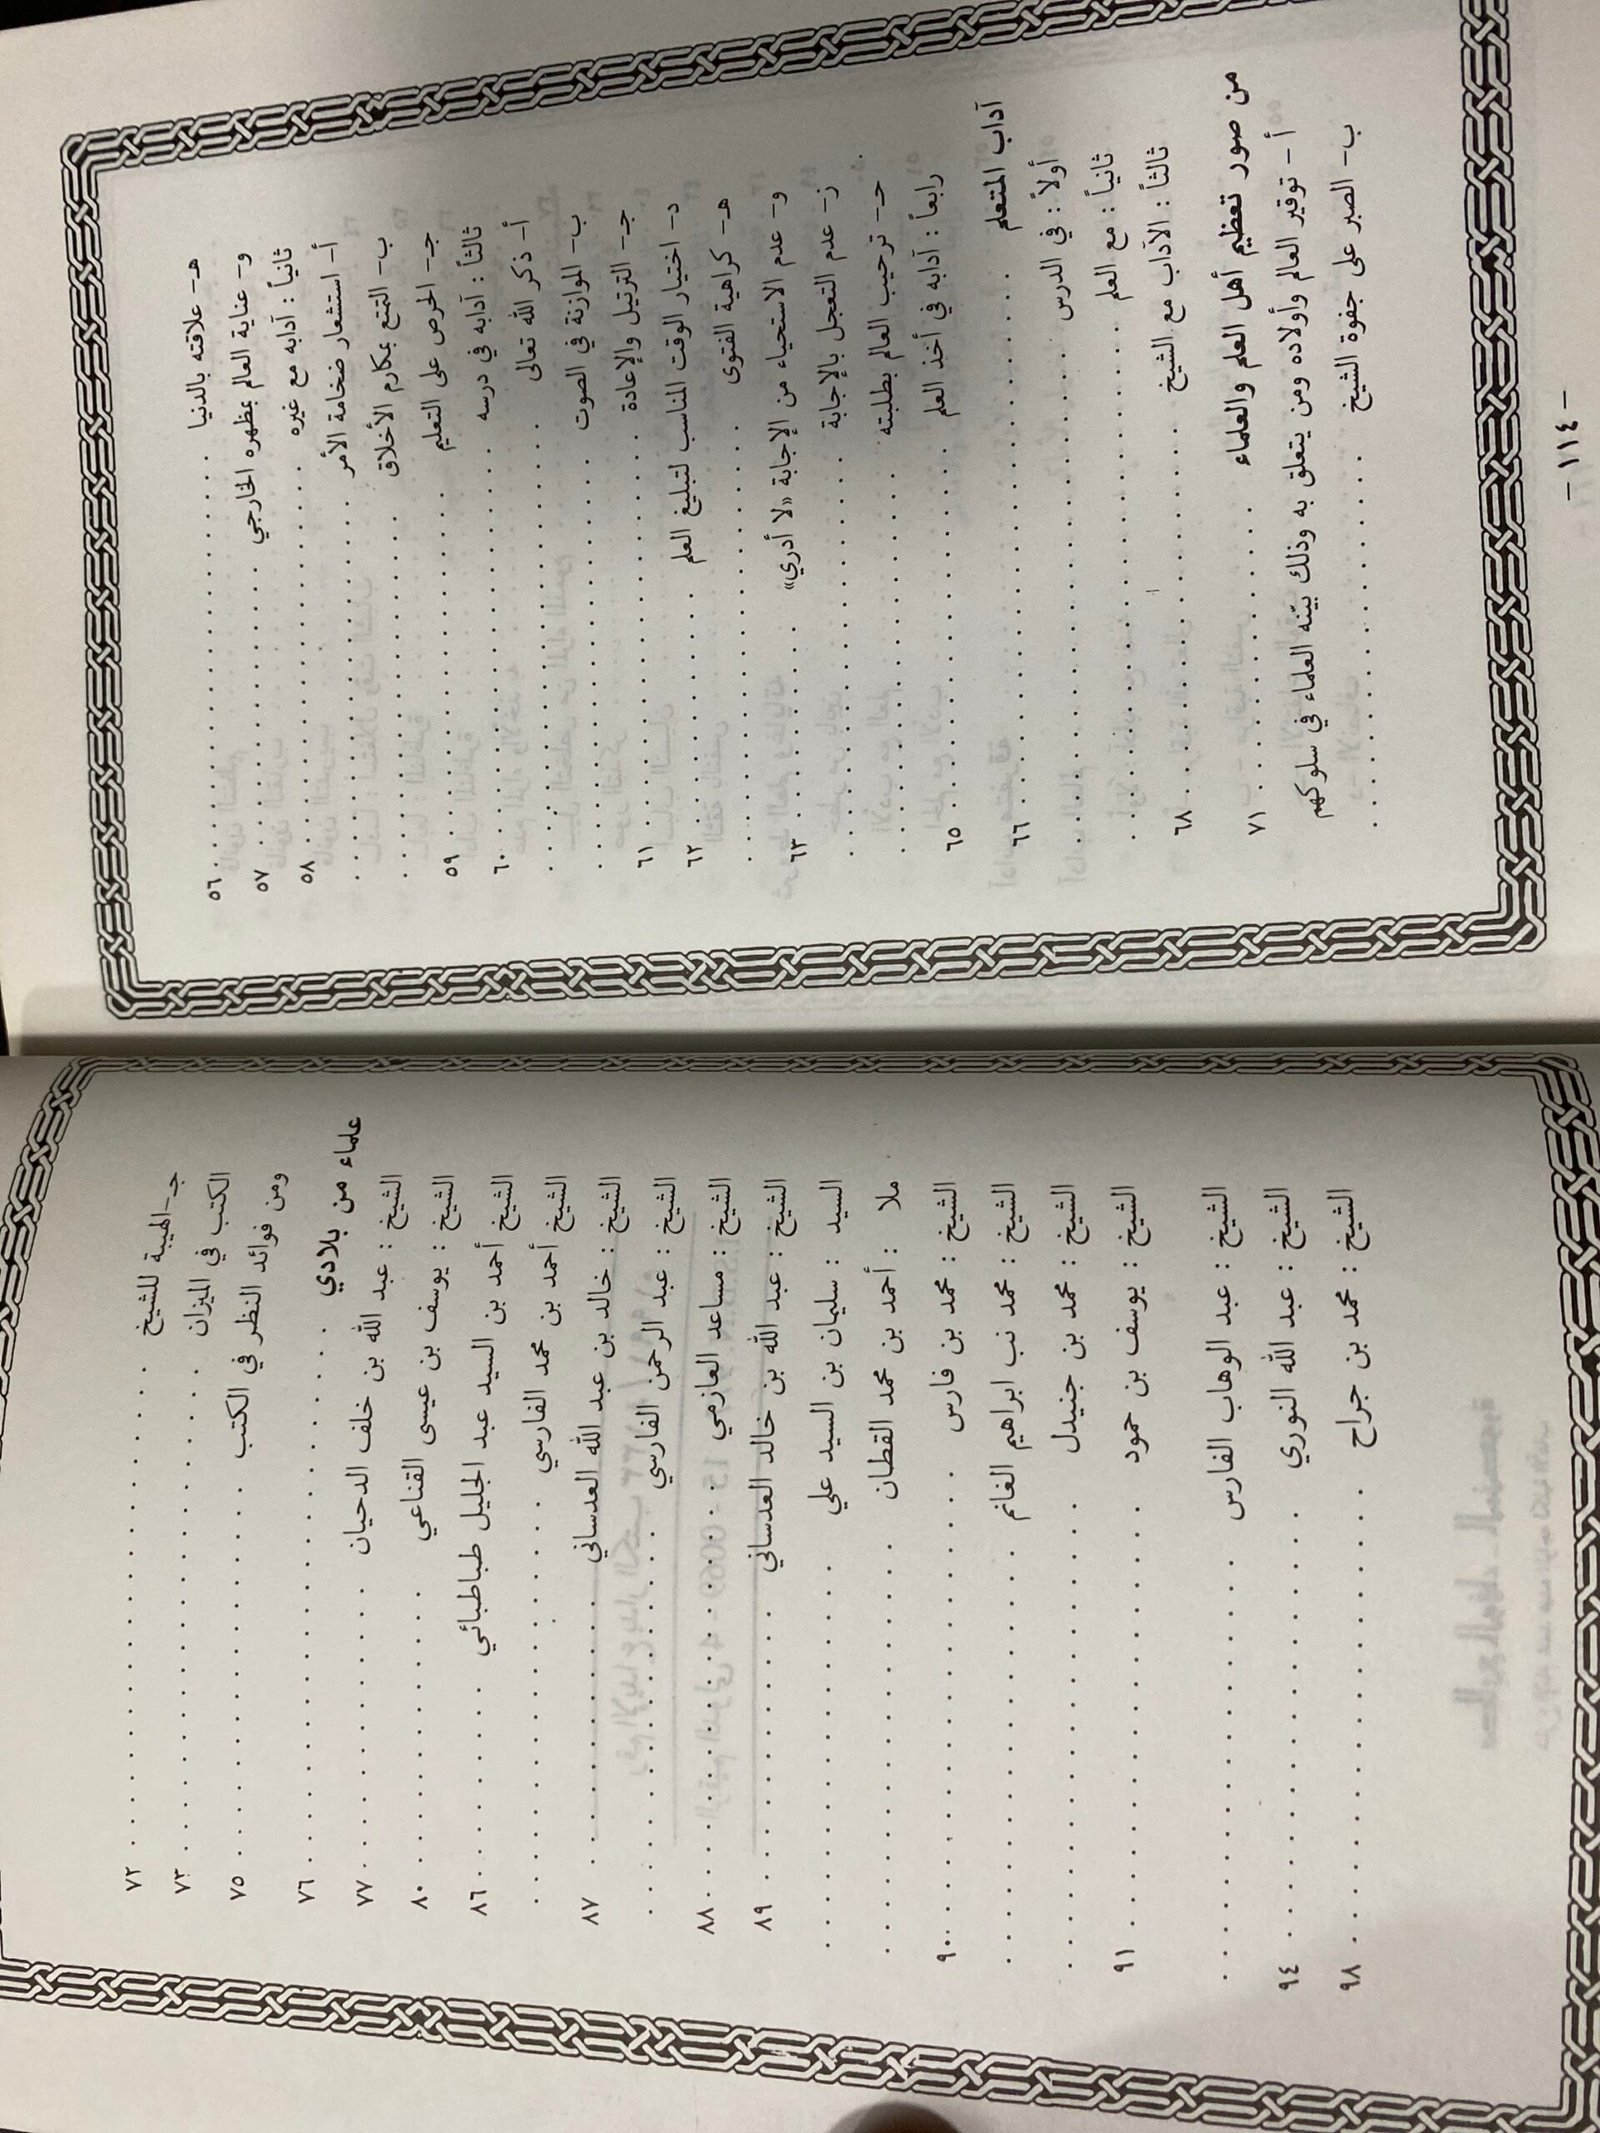 هـ - علاقته بالدنيا . . . . . ٥٦
و - عناية العالم بمظهره الخارجي . . . . . ٥٧
ثانياً : آدابه مع غيره . . . . . ٥٨
أ - استشعار ضخامة الأمر . . . . .
ب - التمتع بمكارم الأخلاق . . . . .
جـ - الحرص على التعليم . . . . . ٥٩
ثالثاً : آدابه في درسه . . . . . ٦٠
أ - ذكر الله تعالى . . . . .
ب - الموازنة في الصوت . . . . .
جـ - الترتيل والإعادة . . . . . ٦١
د - اختيار الوقت المناسب لتبليغ العلم . . . . . ٦٢
هـ - كراهية الفتوى . . . . .
و - عدم الاستحياء من الإجابة «لا أدري» . . . . . ٦٣
ز - عدم التعجل بالإجابة . . . . .
حـ - ترحيب العالم بطلبته . . . . .
رابعاً : آدابه في أخذ العلم . . . . . ٦٥
آداب المتعلم . . . . . ٦٦
أولاً : في الدرس . . . . .
ثانياً : مع العلم . . . . .
ثالثاً : الآداب مع الشيخ . . . . . ٦٨
من صور تعظيم أهل العلم والعلماء . . . . . ٧١
أ - توقير العالم وأولاده ومن يتعلق به وذلك بيّنه العلماء في سلوكهم
ب - الصبر على جفوة الشيخ . . . . .
- ١١٤ -
جـ - الهيبة للشيخ . . . . . ٧٢
الكتب في الميزان . . . . . ٧٣
ومن فوائد النظر في الكتب . . . . . ٧٥
علماء من بلادي . . . . . ٧٦
الشيخ : عبد الله بن خلف الدحيان . . . . . ٧٧
الشيخ : يوسف بن عيسى القناعي . . . . . ٨٠
الشيخ أحمد بن السيد عبد الجليل طباطبائي . . . . . ٨٦
الشيخ أحمد بن محمد الفارسي . . . . .
الشيخ : خالد بن عبد الله العدساني . . . . . ٨٧
الشيخ : عبد الرحمن الفارسي . . . . .
الشيخ : مساعد العازمي . . . . . ٨٨
الشيخ : عبد الله بن خالد العدساني . . . . . ٨٩
السيد : سليمان بن السيد علي . . . . .
ملا : أحمد بن محمد القطان . . . . .
الشيخ : محمد بن فارس . . . . . ٩٠
الشيخ : محمد نب ابراهيم الغانم . . . . .
الشيخ : محمد بن جنيدل . . . . .
الشيخ : يوسف بن حمود . . . . . ٩١
الشيخ : عبد الوهاب الفارس . . . . .
الشيخ : عبد الله النوري . . . . . ٩٤
الشيخ : محمد بن جراح . . . . . ٩٨